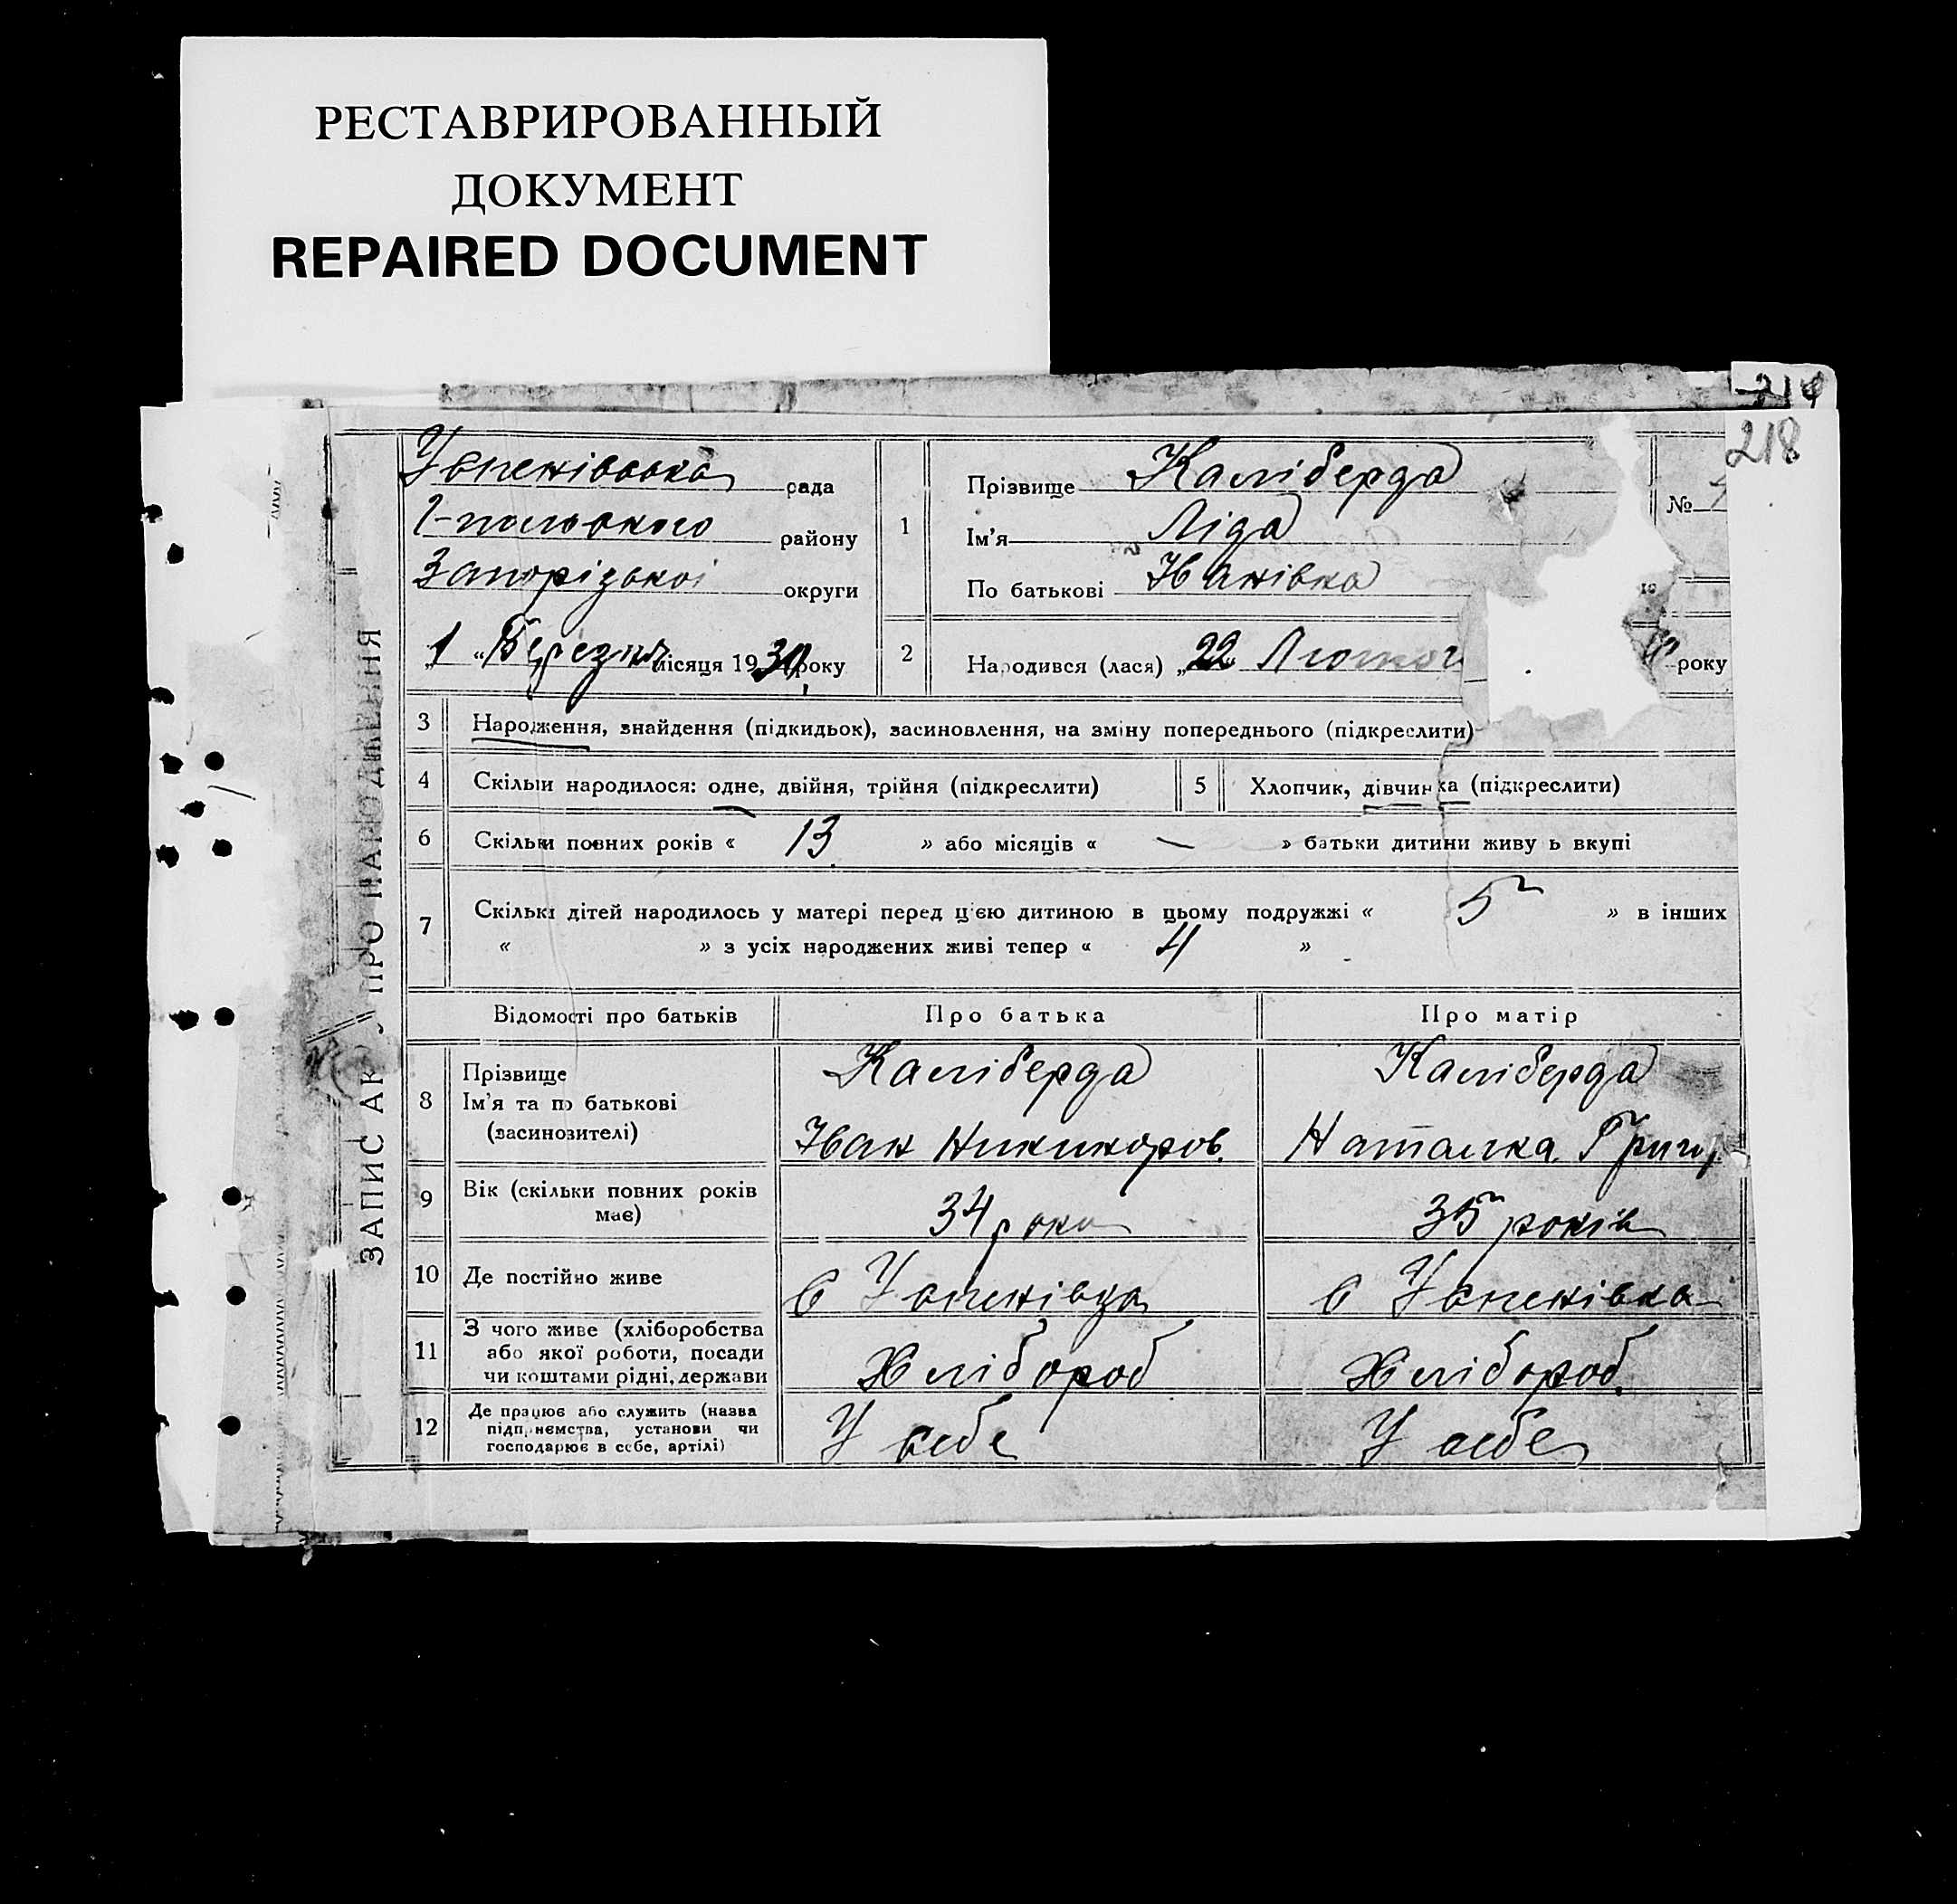 РЕСТАВРИРОВАННЫЙ
ДОКУМЕНТ
REPAIRED DOCUMENT
214
218
ЗАПИС АК ПРО НАРОДЖЕННЯ
Успенівська рада
Г-польського району
Запорізької округи
„1“ Березня місяця 1930 року
1
Прізвище Каліберда
Ім'я Ліда
По батькові Іванівна
№
2
Народився (лася) „22“ Лютого року
3 Народження, знайдення (підкидьок), засиновлення, на зміну попереднього (підкреслити)
4 Скільки народилося: одне, двійня, трійня (підкреслити)
5 Хлопчик, дівчинка (підкреслити)
6 Скільки повних років « 13 » або місяців « — » батьки дитини живу ь вкупі
7 Скільки дітей народилось у матері перед цією дитиною в цьому подружжі « 5 » в інших
« » з усіх народжених живі тепер « 4 »
Відомості про батьків Про батька Про матір
8 Прізвище Каліберда Каліберда
Ім'я та по батькові
(засиновителі) Іван Никиноров. Наталка Григор.
9 Вік (скільки повних років
має) 34 роки 35 років
10 Де постійно живе с Успенівка с Успенівка
11 З чого живе (хліборобства
або якої роботи, посади
чи коштами рідні, держави Хлібороб Хлібороб
12 Де працює або служить (назва
підприємства, установи чи
господарює в себе, артілі) У себе У себе